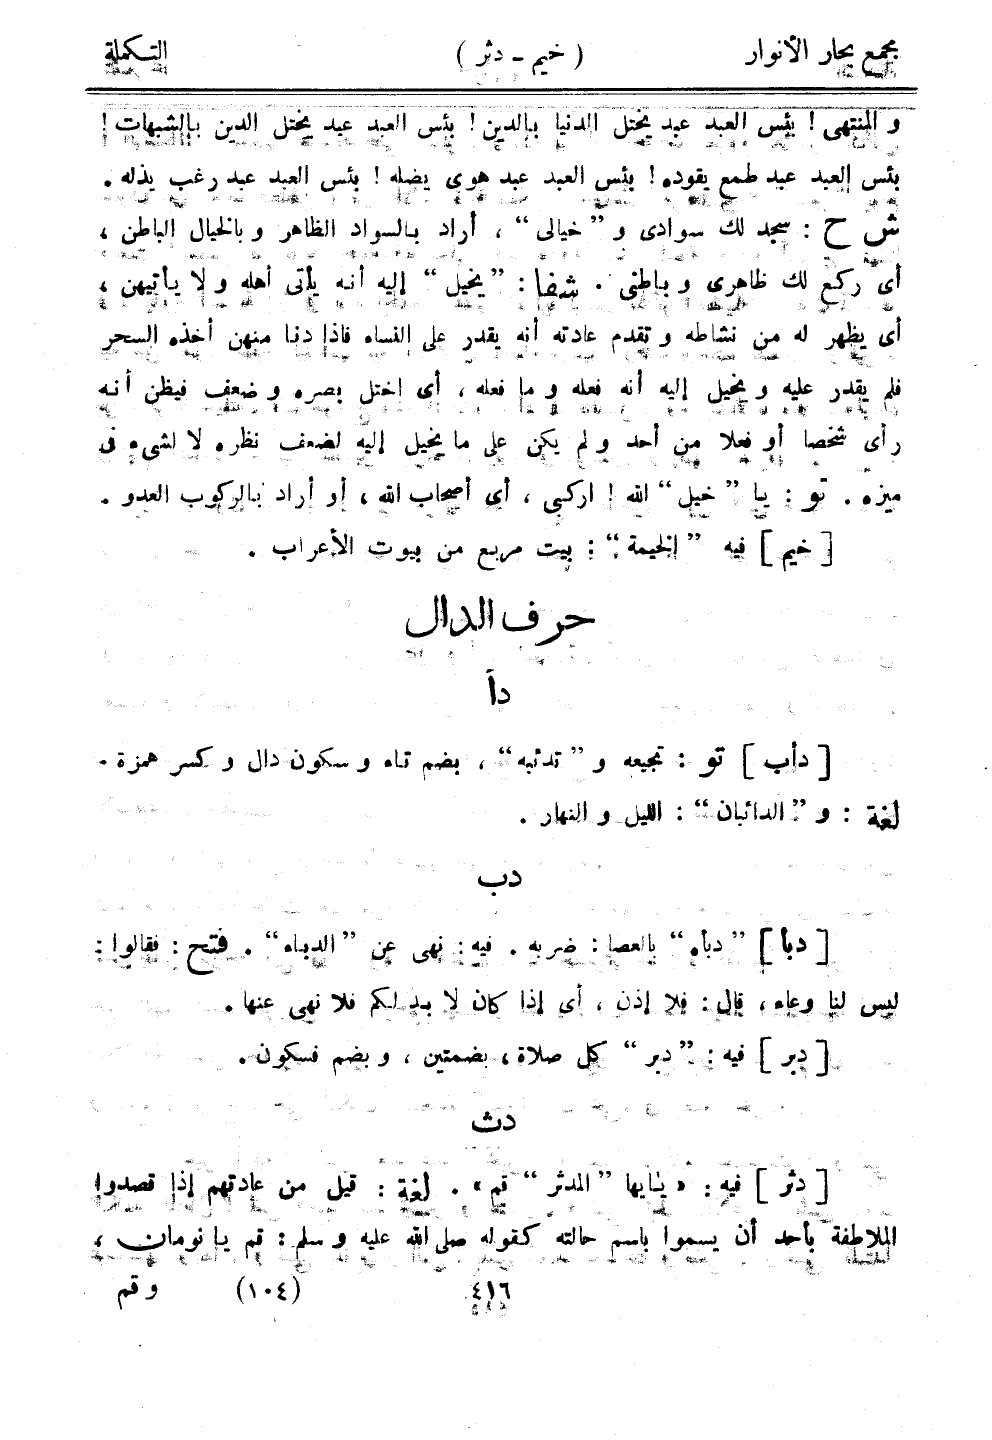 مجمع بحار الأنوار ( خيم ـ دثر ) التكملة
و المنتهى ! بئس العبد عبد يختل الدنيا بالدين ! بئس العبد عبد يختل الدين بالشبهات !
بئس العبد عبد طمع يقوده ! بئس العبد عبد هوى يضله ! بئس العبد عبد رغب يذله .
ش ح : سجد لك سوادى و ” خيالى “ ، أراد بالسواد الظاهر و بالخيال الباطن ،
أى ركع لك ظاهرى و باطنى . شفا : ” يخيل “ إليه أنه يأتى أهله و لا يأتيهن ،
أى يظهر له من نشاطه و تقدم عادته أنه يقدر على النساء فاذا دنا منهن أخذه السحر
فلم يقدر عليه و يخيل إليه أنه فعله و ما فعله ، أى اختل بصره و ضعف فيظن أنه
رأى شخصا أو فعلا من أحد و لم يكن على ما يخيل إليه لضعف نظره لا لشىء فى
ميزه . تو : يا ” خيل “ الله ! اركبى ، أى أصحاب الله ، أو أراد بالركوب العدو .
[ خيم ] فيه ” الخيمة “ : بيت مربع من بيوت الأعراب .
حرف الدال
دأ
[ دأب ] تو : تجيعه و ” تدئبه “ ، بضم تاء و سكون دال و كسر همزة .
لغة : و ” الدائبان “ : الليل و النهار .
دب
[ دبأ ] ” دبأه “ بالعصا : ضربه . فيه : نهى عن ” الدباء “ . فتح : فقالوا :
ليس لنا وعاء ، قال : فلا إذن ، أى إذا كان لا بد لكم فلا نهى عنها .
[ دبر ] فيه : ” دبر “ كل صلاة ، بضمتين ، و بضم فسكون .
دث
[ دثر ] فيه : « يٰايها ” المدثر “ قم » . لغة : قيل من عادتهم إذا قصدوا
الملاطفة بأحد أن يسموا باسم حالته كقوله صلى الله عليه و سلم : قم يا نومان ،
٤١٦ (١٠٤) و قم